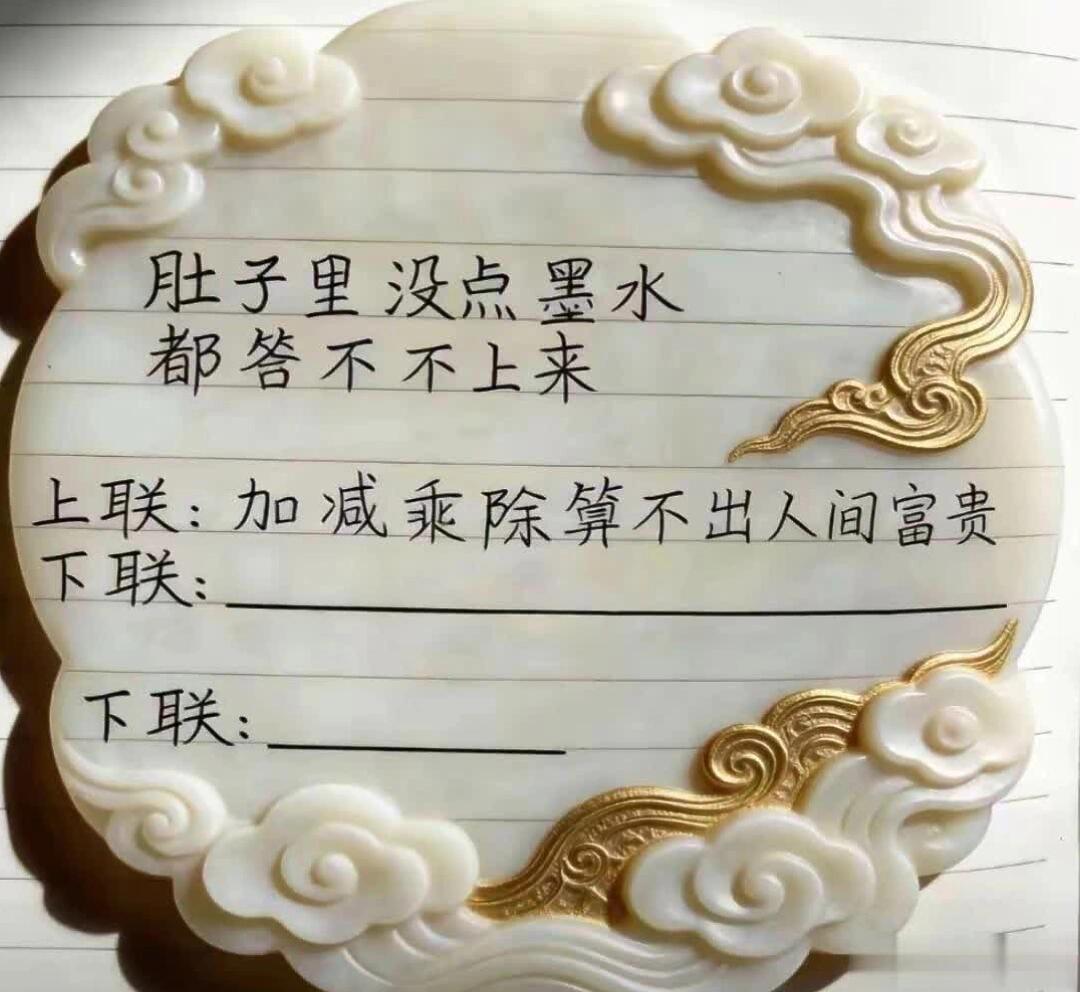 肚子里没点墨水
都答不不上来
上联：加减乘除算不出人间富贵
下联：
下联：